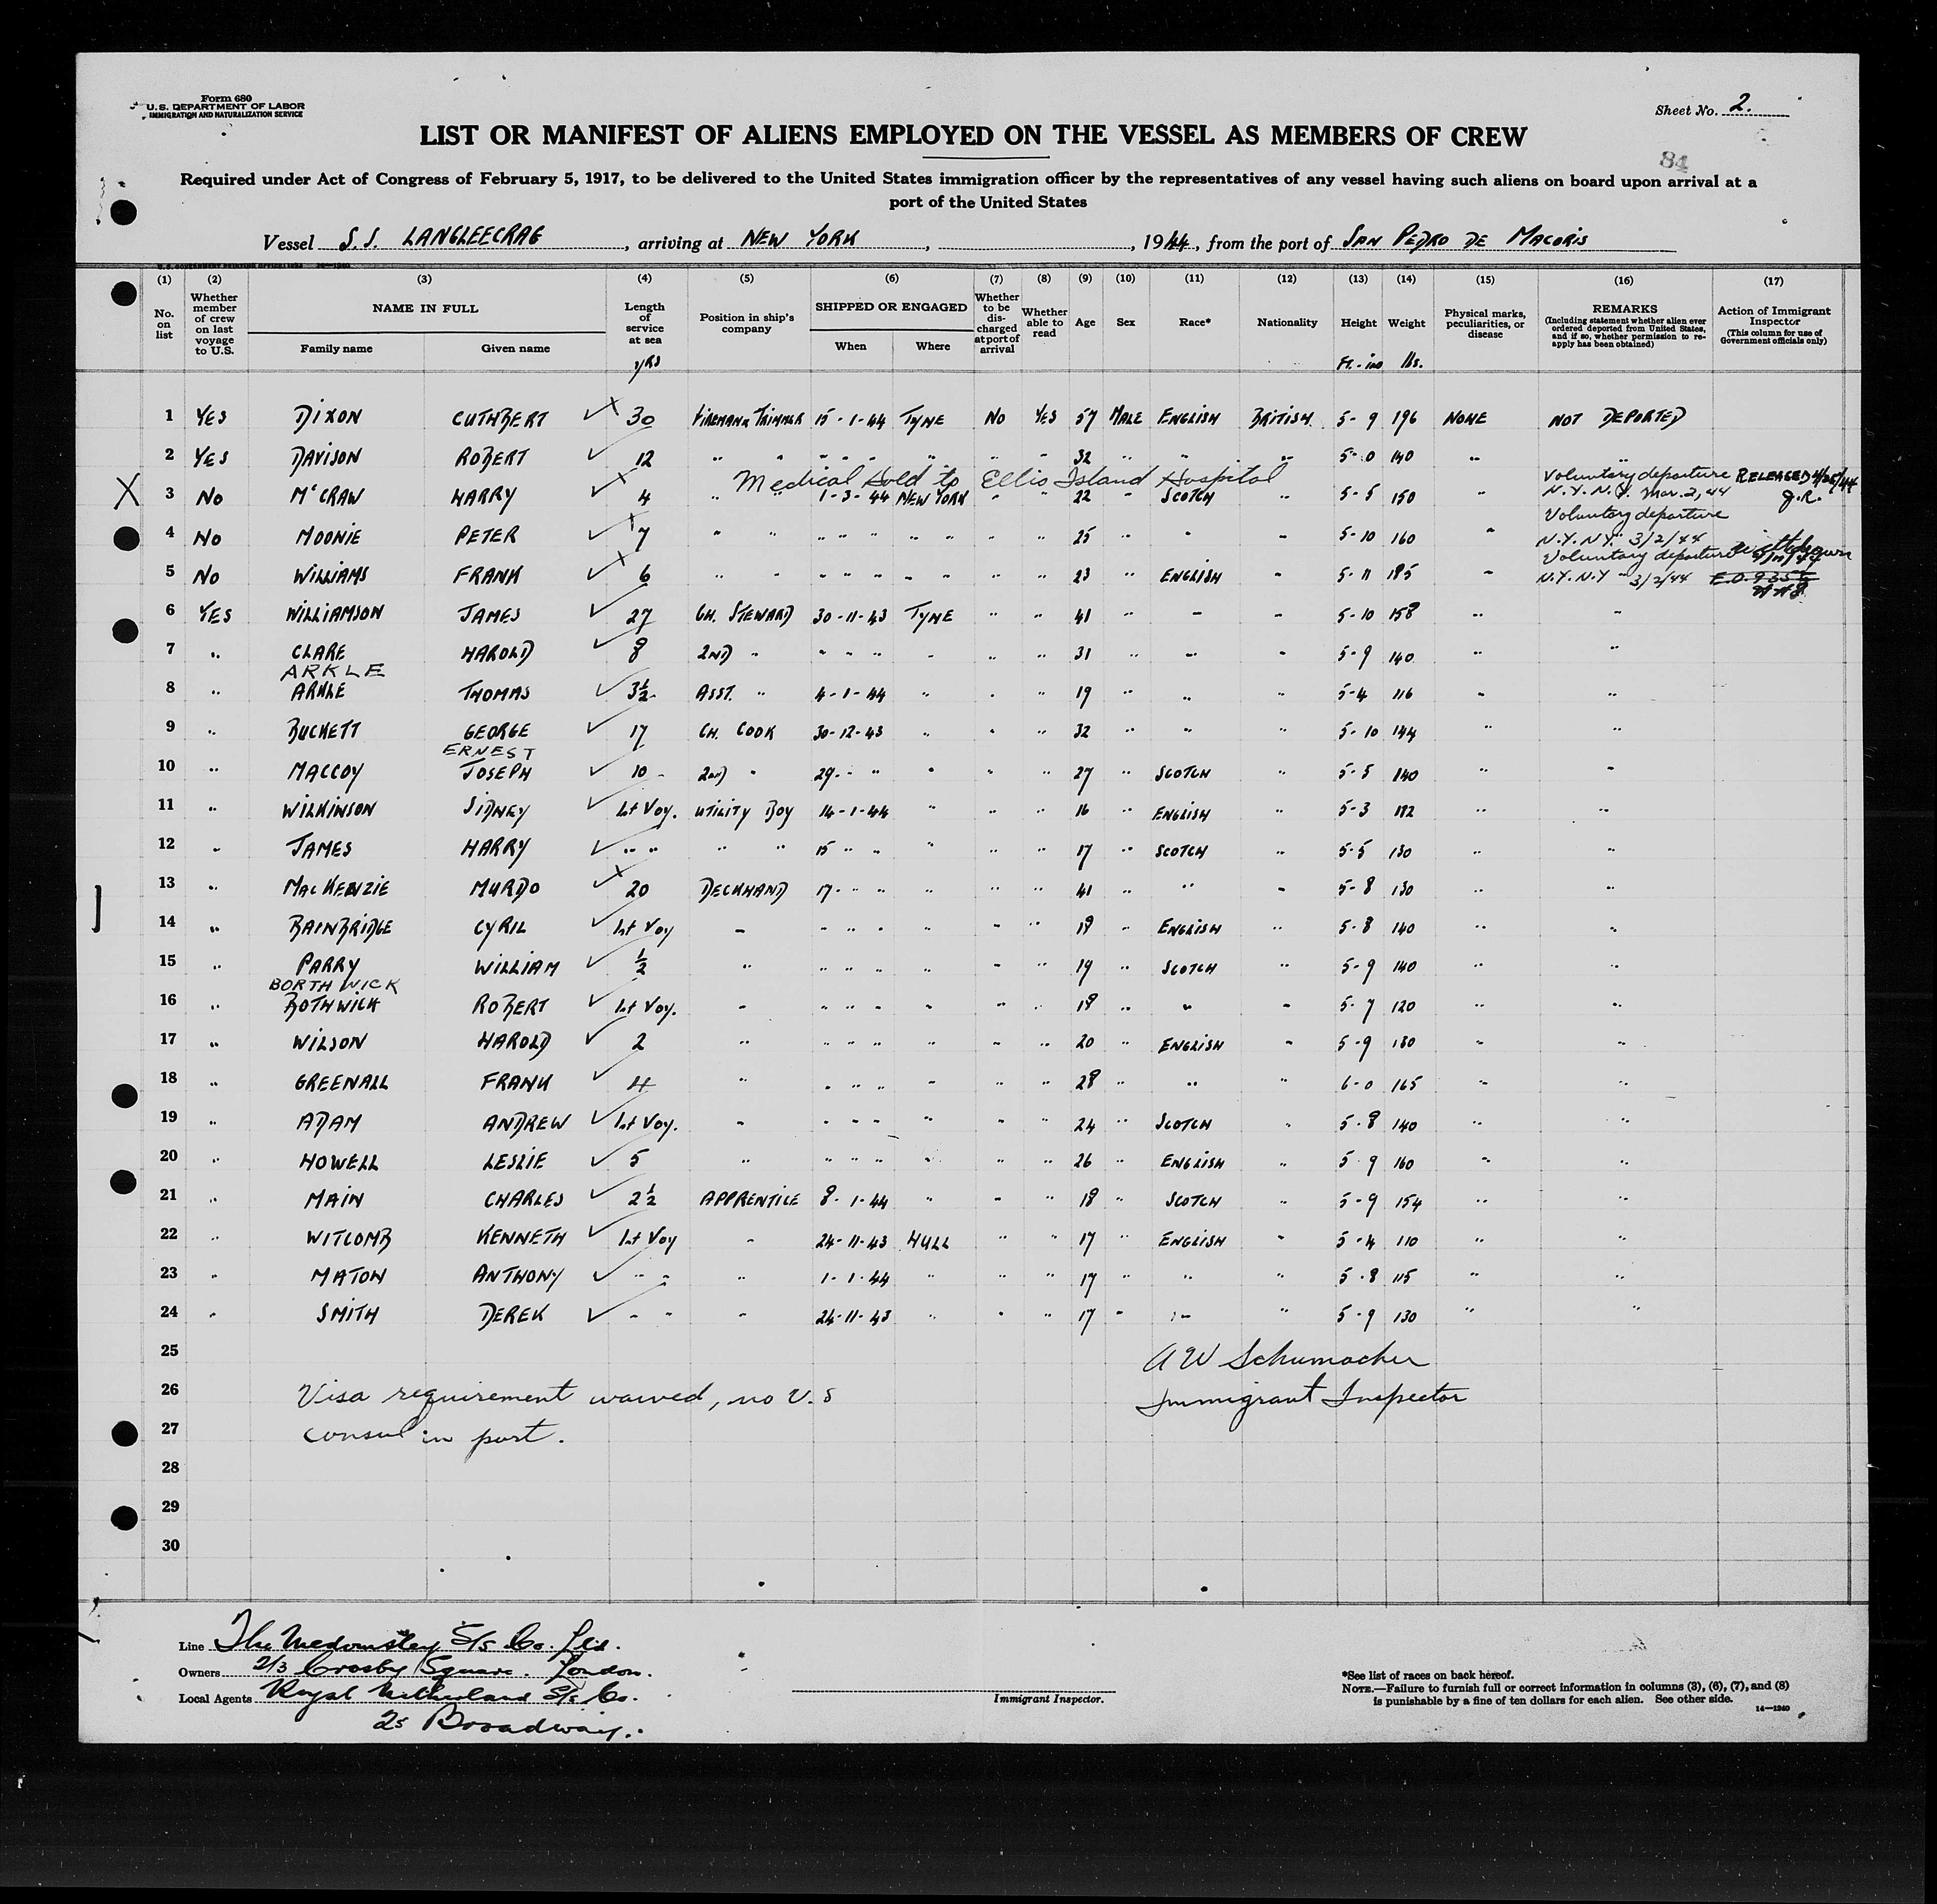 Form 680
U. S. DEPARTMENT OF LABOR
IMMIGRATION AND NATURALIZATION SERVICE
Sheet No. 2.
LIST OR MANIFEST OF ALIENS EMPLOYED ON THE VESSEL AS MEMBERS OF CREW
84
Required under Act of Congress of February 5, 1917, to be delivered to the United States immigration officer by the representatives of any vessel having such aliens on board upon arrival at a
port of the United States
Vessel S.S. LANGLEECRAG, arriving at NEW YORK, , 1944, from the port of SAN PEDRO DE MACORIS
(1) (2) (3) (4) (5) (6) (7) (8) (9) (10) (11) (12) (13) (14) (15) (16) (17)
No. on list
Whether member of crew on last voyage to U.S.
NAME IN FULL
Family name Given name
Length of service at sea
yrs
Position in ship's company
SHIPPED OR ENGAGED
When Where
Whether to be discharged at port of arrival
Whether able to read
Age
Sex
Race*
Nationality
Height
Ft. - ins
Weight
lbs.
Physical marks, peculiarities, or disease
REMARKS
(Including statement whether alien ever ordered deported from United States, and if so, whether permission to reapply has been obtained)
Action of Immigrant Inspector
(This column for use of Government officials only)
1 YES DIXON CUTHBERT 30 FIREMAN & TRIMMER 15-1-44 TYNE NO YES 57 MALE ENGLISH BRITISH 5-9 196 NONE NOT DEPORTED
2 YES DAVISON ROBERT 12 " " " " " " " " 32 " " " 5-0 140 " "
Medical Hold to Ellis Island Hospital
X 3 NO McCRAW HARRY 4 " " 1-3-44 NEW YORK " " 22 " SCOTCH " 5-5 150 " Voluntary departure N.Y. N.Y. Mar. 2, 44 RELEASED J.R.
4 NO MOONIE PETER 7 " " " " " " " " " 25 " " " 5-10 160 " Voluntary departure N.Y. N.Y. 3/2/44
5 NO WILLIAMS FRANK 6 " " " " " " " " " 23 " ENGLISH " 5-11 185 " Voluntary departure N.Y. N.Y 3/2/44 withdrawn E.O. 9352
6 YES WILLIAMSON JAMES 27 CH. STEWARD 30-11-43 TYNE " " 41 " " " 5-10 158 " "
7 " CLARE HAROLD 8 2ND " " " " " " " 31 " " " 5-9 140 " "
ARKLE
8 " ARKLE THOMAS 3½ ASST. " 4-1-44 " " " 19 " " " 5-4 116 " "
9 " BUCKETT GEORGE 17 CH. COOK 30-12-43 " " " 32 " " " 5-10 144 " "
ERNEST
10 " MACCOY JOSEPH 10 2ND " 29 " " " " " 27 " SCOTCH " 5-5 140 " "
11 " WILKINSON SIDNEY 1st Voy. UTILITY BOY 14-1-44 " " " 16 " ENGLISH " 5-3 112 " "
12 " JAMES HARRY " " " " 15 " " " " " 17 " SCOTCH " 5-5 130 " "
13 " MACKENZIE MURDO 20 DECKHAND 17 " " " " " 41 " " " 5-8 130 " "
14 " BAINBRIDGE CYRIL 1st Voy " " " " " " " 18 " ENGLISH " 5-8 140 " "
15 " PARRY WILLIAM ½ " " " " " " " 19 " SCOTCH " 5-9 140 " "
BORTHWICK
16 " BOTHWICK ROBERT 1st Voy. " " " " " " " 18 " " " 5-7 120 " "
17 " WILSON HAROLD 2 " " " " " " " 20 " ENGLISH " 5-9 130 " "
18 " GREENALL FRANK 4 " " " " " " " 28 " " " 6-0 165 " "
19 " ADAM ANDREW 1st Voy. " " " " " " " 24 " SCOTCH " 5-8 140 " "
20 " HOWELL LESLIE 5 " " " " " " " 26 " ENGLISH " 5 9 160 " "
21 " MAIN CHARLES 2½ APPRENTICE 8-1-44 " " " 18 " SCOTCH " 5-9 154 " "
22 " WITCOMB KENNETH 1st Voy " 24-11-43 HULL " " 17 " ENGLISH " 5-4 110 " "
23 " MATON ANTHONY " " " 1-1-44 " " " 17 " " " 5-8 115 " "
24 " SMITH DEREK " " " 24-11-43 " " " 17 " " " 5-9 130 " "
25 A W Schumacher
26 Visa requirement waived, no U.S Immigrant Inspector
27 consul in port.
28
29
30
Line The Medomsley S/S Co. Ltd.
Owners 2/3 Crosby Square. London.
Local Agents Royal Netherland S/S Co.
25 Broadway.
Immigrant Inspector.
*See list of races on back hereof.
NOTE.—Failure to furnish full or correct information in columns (3), (6), (7), and (8)
is punishable by a fine of ten dollars for each alien. See other side.
14—1240